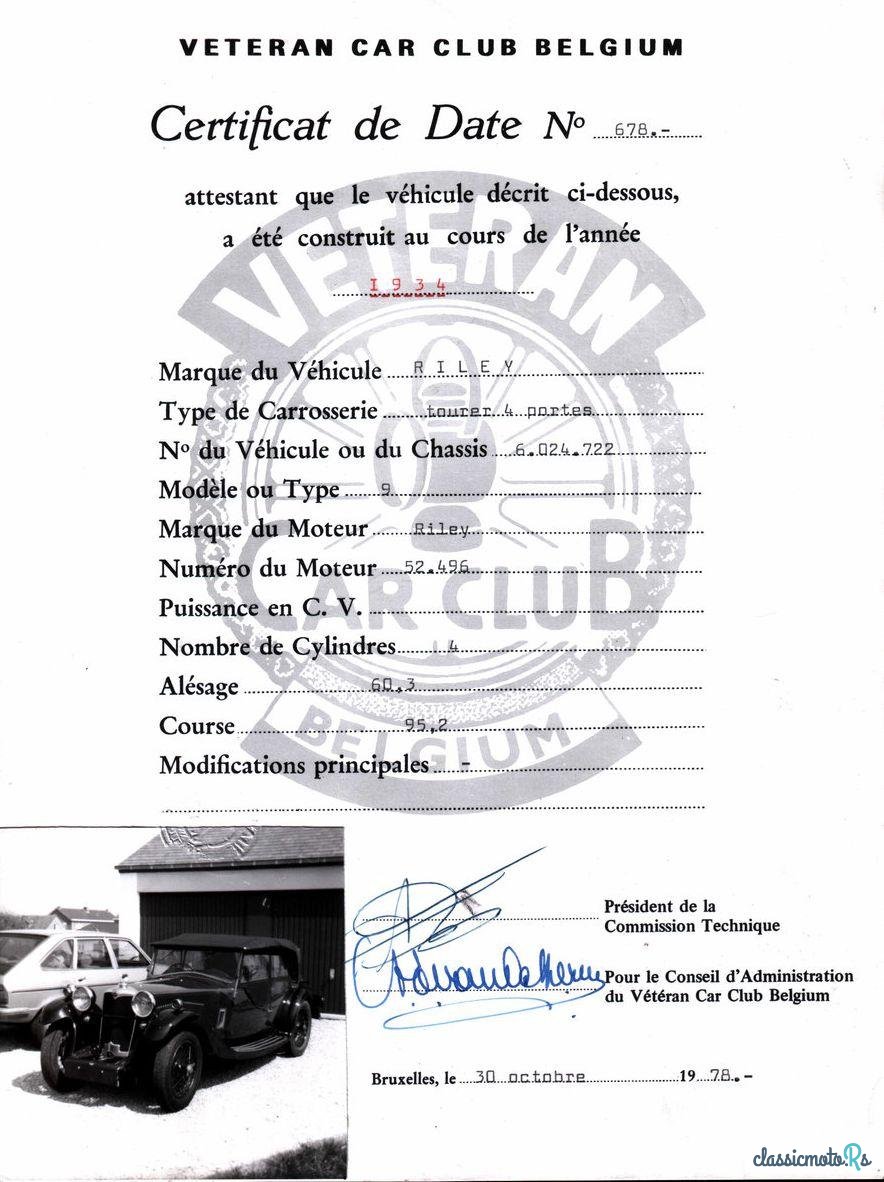 VETERAN CAR CLUB BELGIUM
Certificat de Date Nº 678.-
attestant que le véhicule décrit ci-dessous,
a été construit au cours de l'année
1934
VETERAN
CAR CLUB
BELGIUM
Marque du Véhicule RILEY
Type de Carrosserie tourer 4 portes
Nº du Véhicule ou du Chassis 6.024.722
Modèle ou Type 9
Marque du Moteur Riley
Numéro du Moteur 52.496
Puissance en C. V.
Nombre de Cylindres 4
Alésage 60,3
Course 95,2
Modifications principales -
Président de la
Commission Technique
Pour le Conseil d'Administration
du Vétéran Car Club Belgium
Bruxelles, le 30 octobre 1978.-
classicmoto.Rs